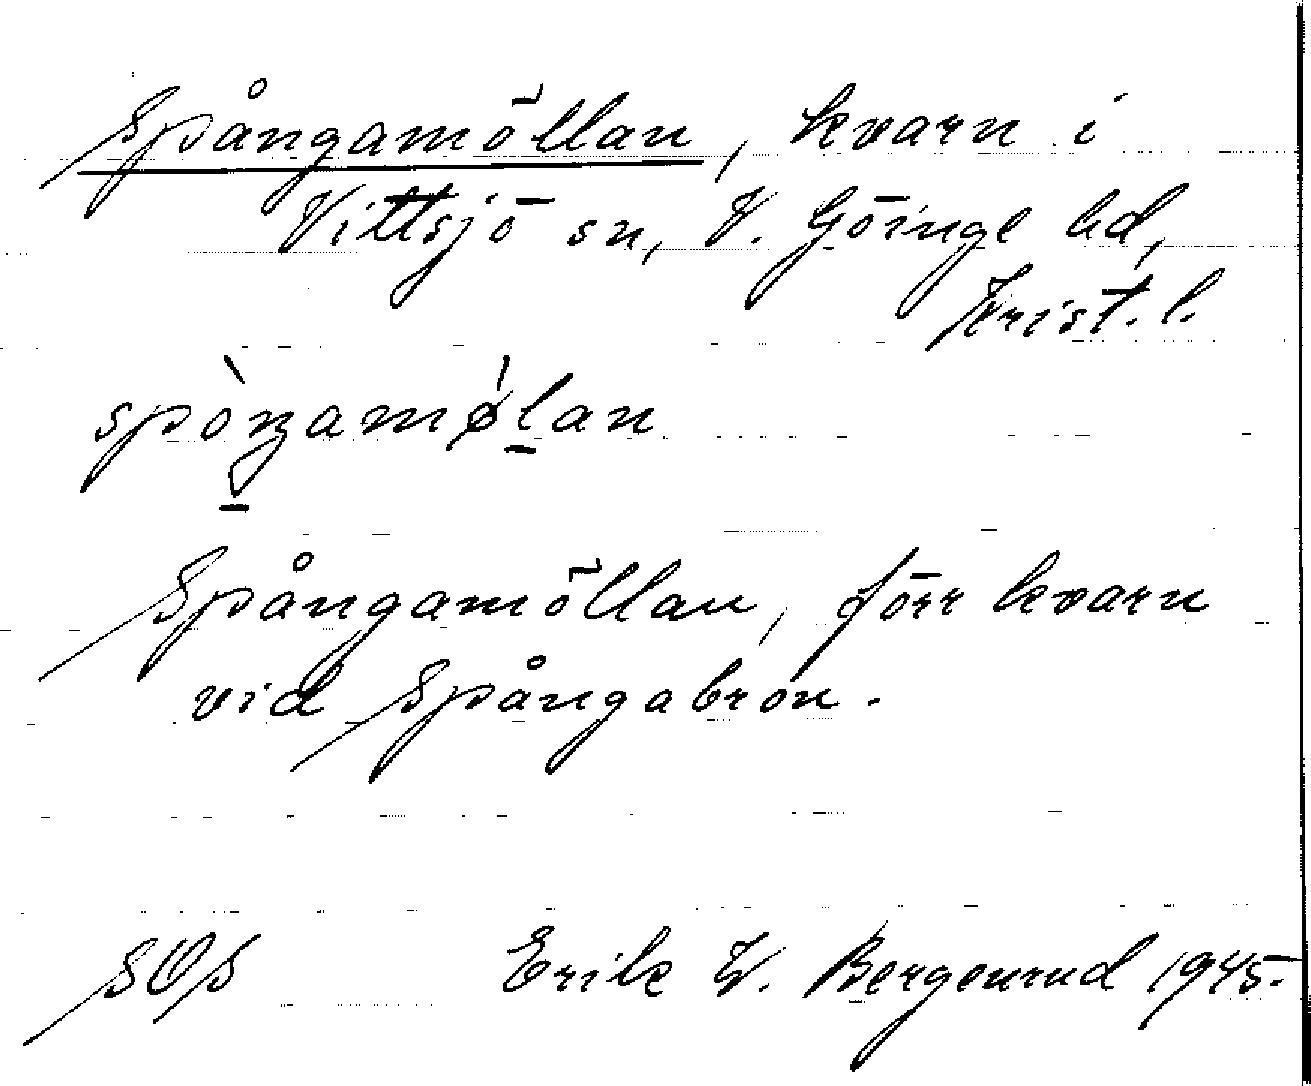 Spångamöllan, kvarn i
Vittsjö sn, V. Göinge hd,
Krist. l.
spòŋamǿlan
Spångamöllan, förr kvarn
vid Spångabron.
SOS Erik W. Bergenrud 1945.